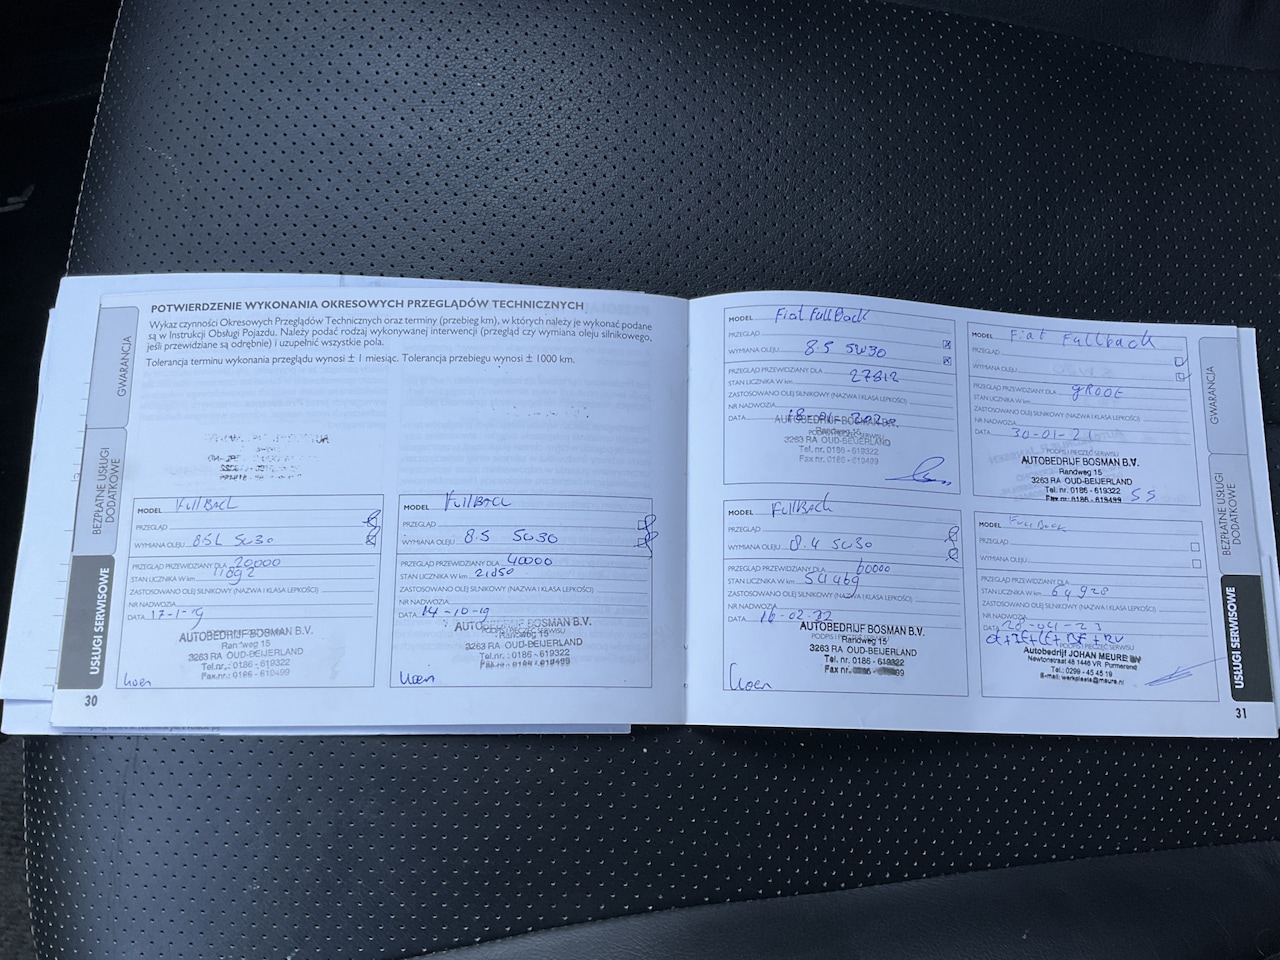 POTWIERDZENIE WYKONANIA OKRESOWYCH PRZEGLĄDÓW TECHNICZNYCH
Wykaz czynności Okresowych Przeglądów Technicznych oraz terminy (przebieg km), w których należy je wykonać podane
są w Instrukcji Obsługi Pojazdu. Należy podać rodzaj wykonywanej interwencji (przegląd czy wymiana oleju silnikowego,
jeśli przewidziane są odrębnie) i uzupełnić wszystkie pola.
Tolerancja terminu wykonania przeglądu wynosi ± 1 miesiąc. Tolerancja przebiegu wynosi ± 1000 km.
GWARANCJA
BEZPŁATNE USŁUGI
DODATKOWE
USŁUGI SERWISOWE
MODEL FullBACk
PRZEGLĄD
WYMIANA OLEJU 8.5L 5W30
PRZEGLĄD PRZEWIDZIANY DLA 20000
STAN LICZNIKA W km 11892
ZASTOSOWANO OLEJ SILNIKOWY (NAZWA I KLASA LEPKOŚCI)
NR NADWOZIA
DATA 17-1-19
AUTOBEDRIJF BOSMAN B.V.
Randweg 15
3263 RA OUD-BEIJERLAND
Tel.nr.: 0186 - 619322
Fax nr.: 0186 - 619499
Koen
30
MODEL FullBACk
PRZEGLĄD
WYMIANA OLEJU 8.5 5W30
PRZEGLĄD PRZEWIDZIANY DLA 40000
STAN LICZNIKA W km 21850
ZASTOSOWANO OLEJ SILNIKOWY (NAZWA I KLASA LEPKOŚCI)
NR NADWOZIA
DATA 14-10-19
AUTOBEDRIJF BOSMAN B.V.
Randweg 15
3263 RA OUD-BEIJERLAND
Tel.nr.: 0186 - 619322
Fax nr.: 0186 - 619499
Koen
MODEL Fiat FullBack
PRZEGLĄD
WYMIANA OLEJU 8.5 5W30
PRZEGLĄD PRZEWIDZIANY DLA
STAN LICZNIKA W km 27812
ZASTOSOWANO OLEJ SILNIKOWY (NAZWA I KLASA LEPKOŚCI)
NR NADWOZIA
DATA
AUTOBEDRIJF BOSMAN B.V.
Randweg 15
3263 RA OUD-BEIJERLAND
Tel. nr. 0186 - 619322
Fax nr. 0186 - 619499
MODEL Fiat Fullback
PRZEGLĄD
WYMIANA OLEJU
PRZEGLĄD PRZEWIDZIANY DLA gROOT
STAN LICZNIKA W km
ZASTOSOWANO OLEJ SILNIKOWY (NAZWA I KLASA LEPKOŚCI)
NR NADWOZIA
DATA 30-01-21
PODPIS I PIECZĘĆ SERWISU
AUTOBEDRIJF BOSMAN B.V.
Randweg 15
3263 RA OUD-BEIJERLAND
Tel. nr. 0186 - 619322
Fax nr. 0186 - 619499
MODEL FullBack
PRZEGLĄD
WYMIANA OLEJU 8.4 5W30
PRZEGLĄD PRZEWIDZIANY DLA 60000
STAN LICZNIKA W km 54469
ZASTOSOWANO OLEJ SILNIKOWY (NAZWA I KLASA LEPKOŚCI)
NR NADWOZIA
DATA 16-02-22
AUTOBEDRIJF BOSMAN B.V.
PODPIS I PIECZĘĆ SERWISU
Randweg 15
3263 RA OUD-BEIJERLAND
Tel. nr. 0186 - 619322
Koen
MODEL FullBack
PRZEGLĄD
WYMIANA OLEJU
PRZEGLĄD PRZEWIDZIANY DLA
STAN LICZNIKA W km 64928
ZASTOSOWANO OLEJ SILNIKOWY (NAZWA I KLASA LEPKOŚCI)
NR NADWOZIA
DATA 20-04-23
Autobedrijf JOHAN MEURE BV
Newtonstraat 48 1446 VR Purmerend
Tel.: 0299 - 45 45 19
E-mail: werkplaats@meure.nl
GWARANCJA
BEZPŁATNE USŁUGI
DODATKOWE
USŁUGI SERWISOWE
31